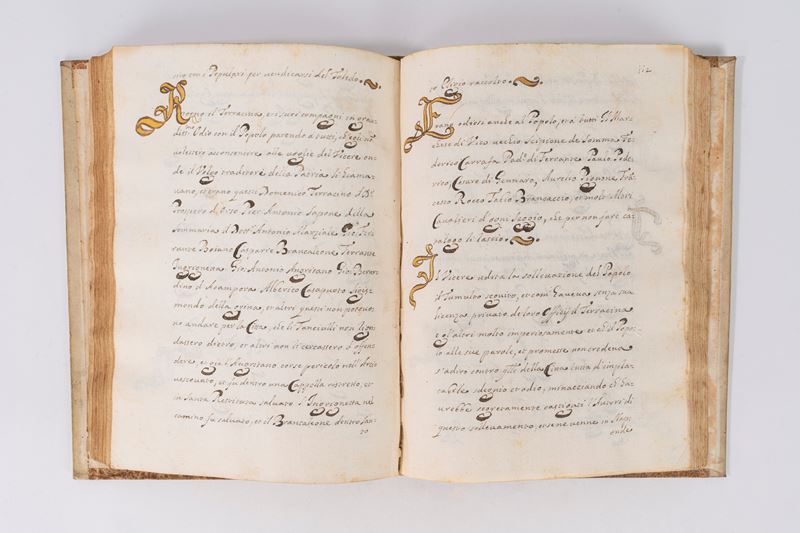 sio con i Populari per vendicarsi del Toledo.
Rimogno di Terracina, et i suoi compagni in gran
diss.mo odio con il Popolo parendo a tutti, ch'egli
volessi acconsentire alle voglie del Vicere on
de il Volgo traditore della Patria li chiama
uano, et erano questi Domenico Terracino il Dr
Prospero d'Orso Pier Antonio Sapone della
Sommaria il Dott. Antonio Marziale Gio: Fer
rante Boiano Gasparre Brancaleone Terrasse
Ingrignetta Gio: Antonio Angritano Gio: Berar
dino d'Acampora Alberico Casapuoto Sigis
mondo della et altri questi non poteuo
no andare per la Città, che li Fanciulli non li gri
dassero dietro, et altri non li cercassero d'offen
dere, e già l'Angritano corse pericolo nell'Arci
vescovato, et fu dentro una Cappella ristretto, et
in Santa Restituta saluato l'Ingrignetta nel
camino fu saluato, et il Brancaleone dentro San
to
112
to Eligio raccolto.
Erano odiosi anche al Popolo, et a' tutti il Mar
chese di Vico vecchio Scipione de Somma Fe
derico Carrafa Pad.e di Ferrante Paulo Pode
rico, Cesare di Gennaro, Aurelio Pignone Fra
cesco Rocco Fabio Brancaccio, et molti Altri
Cavalieri d'ogni Seggio, che per non fare ca
talogo li lascio.
Il Vicere udita la sollevazione del Popolo
il Tumulto seguito, et com'haueua senza sua
licenza priuato de loro Officij il Terracina
e gl'altri molto imperiosamente et ch'il Popo
lo alle sue parole, et promesse non credeua
s'adirò contro gl'atti della Città tutta d'implac
cabile sdegnio et odio, minacciando ch'ha
urebbe segretamente castigati l'Autori di
questo solleuamento, et se ne venne in Napo
onde